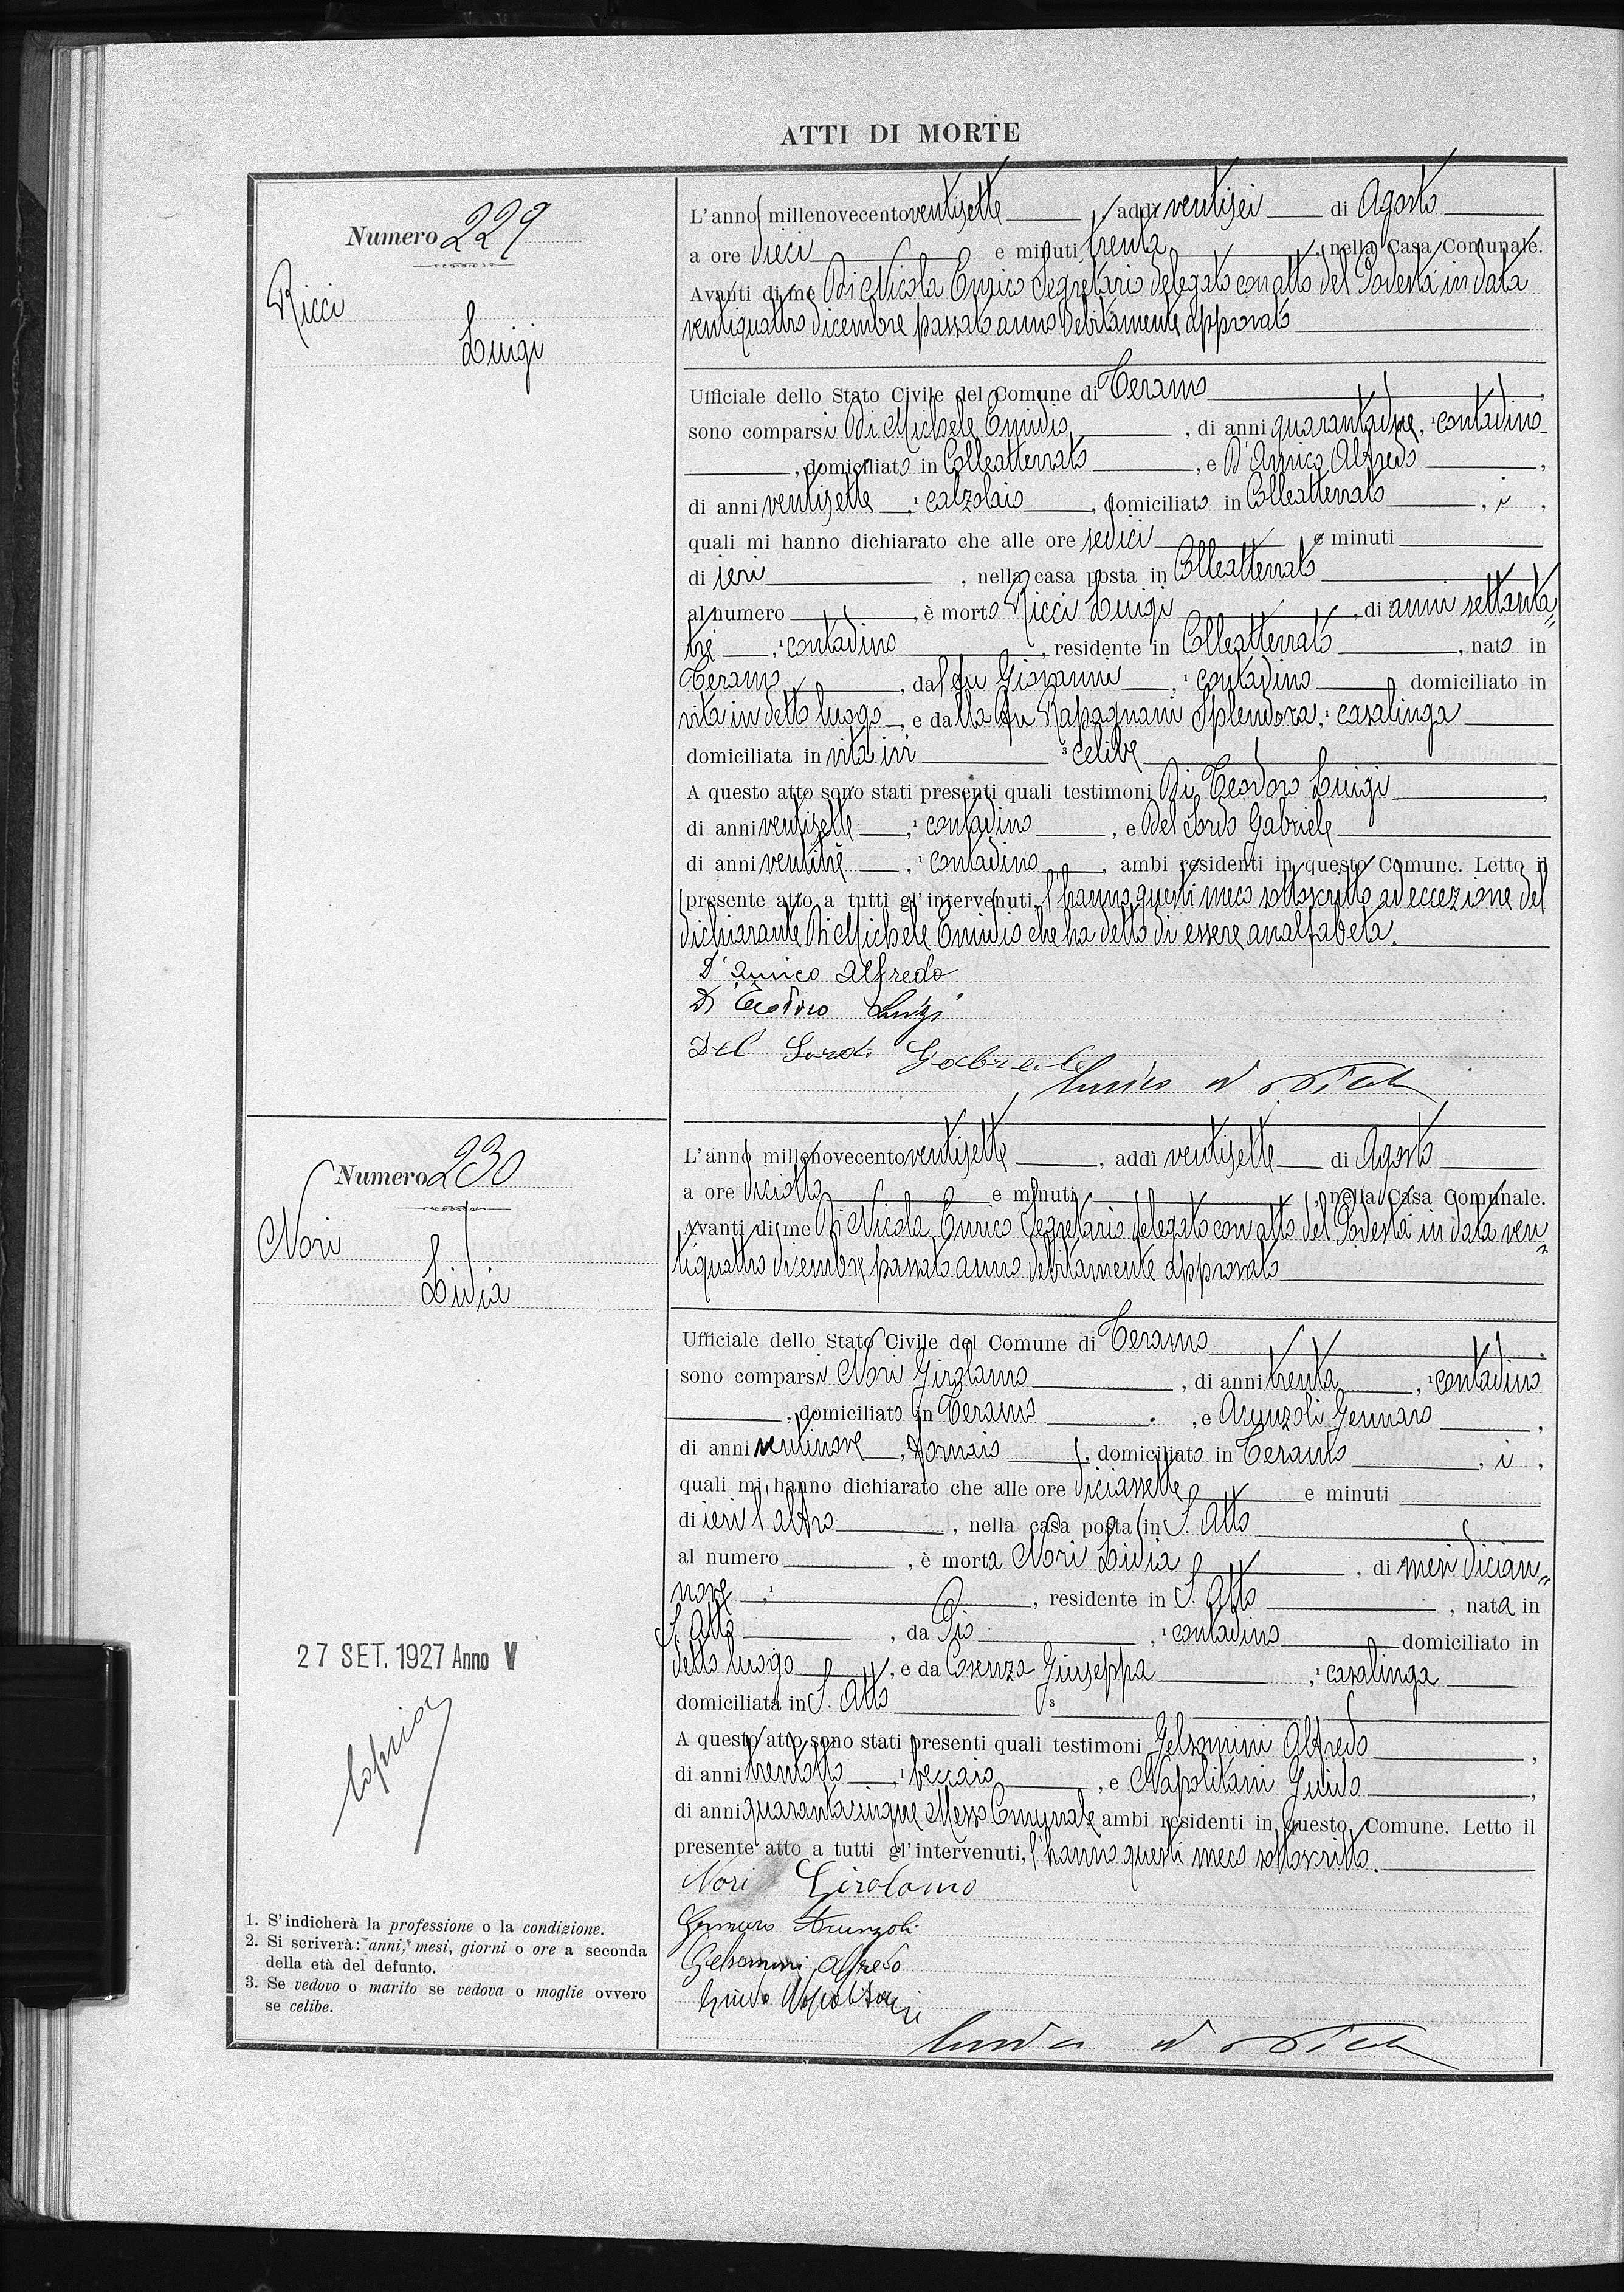 ATTI DI MORTE
Numero 229
Ricci
Luigi
L'anno millenovecentoventisette, addì ventisei di Agosto
a ore dieci e minuti trenta, nella Casa Comunale.
Avanti di me Di Nicola Enrico Segretario delegato con atto del Podestà in data
ventiquattro dicembre passato anno debitamente approvato
Ufficiale dello Stato Civile del Comune di Teramo,
sono comparsi Di Michele Emidio, di anni quarantadue, ¹ contadino
, domiciliato in Colleatterrato, e D'Amico Alfredo,
di anni ventisette, ¹ calzolaio, domiciliato in Colleatterrato, i,
quali mi hanno dichiarato che alle ore sedici e minuti
di ieri, nella casa posta in Colleatterrato
al numero, è morto Ricci Luigi, di anni settanta=
tré, ¹ contadino, residente in Colleatterrato, nato in
Teramo, dal fu Giovanni, ¹ contadino domiciliato in
vita in detto luogo, e dalla fu Rapagnani Splendora, ¹ casalinga
domiciliata in vita ivi ³ celibe
A questo atto sono stati presenti quali testimoni Di Teodoro Luigi,
di anni ventisette, ¹ contadino, e Del Sordo Gabriele
di anni ventitrè, ¹ contadino, ambi residenti in questo Comune. Letto il
presente atto a tutti gl'intervenuti, l'hanno questi meco sottoscritto ad eccezione del
dichiarante Di Michele Emidio che ha detto di essere analfabeta.
D'Amico Alfredo
Di Teodoro Luigi
Del Sordo Gabriele
Enrico Di Nicola
Numero 230
Nori
Lidia
L'anno millenovecentoventisette, addì ventisette di Agosto
a ore diciotto e minuti, nella Casa Comunale.
Avanti di me Di Nicola Enrico Segretario delegato con atto del Podestà in data ven=
tiquattro dicembre passato anno debitamente approvato
Ufficiale dello Stato Civile del Comune di Teramo,
sono comparsi Nori Girolamo, di anni trenta, ¹ contadino
, domiciliato in Teramo, e Acunzoli Gennaro,
di anni ventinove, fornaio, domiciliato in Teramo, i,
quali mi hanno dichiarato che alle ore diciassette e minuti
di ieri l'altro, nella casa posta in S. Atto
al numero, è morta Nori Lidia, di mesi dician=
nove, ¹, residente in S. Atto, nata in
S. Atto, da Pio, ¹ contadino domiciliato in
detto luogo, e da Cosenza Giuseppa, ¹ casalinga
domiciliata in S. Atto ³
A questo atto sono stati presenti quali testimoni Gelsomini Alfredo,
di anni trentotto, ¹ beccaio, e Napolitani Guido,
di anni quarantacinque Messo Comunale ambi residenti in questo Comune. Letto il
presente atto a tutti gl'intervenuti, l'hanno questi meco sottoscritto.
Nori Girolamo
Gennaro Acunzoli
Gelsomini Alfredo
Guido Napolitani
Enrico Di Nicola
27 SET. 1927 Anno V
Copia
1. S'indicherà la professione o la condizione.
2. Si scriverà: anni, mesi, giorni o ore a seconda
della età del defunto.
3. Se vedovo o marito se vedova o moglie ovvero
se celibe.